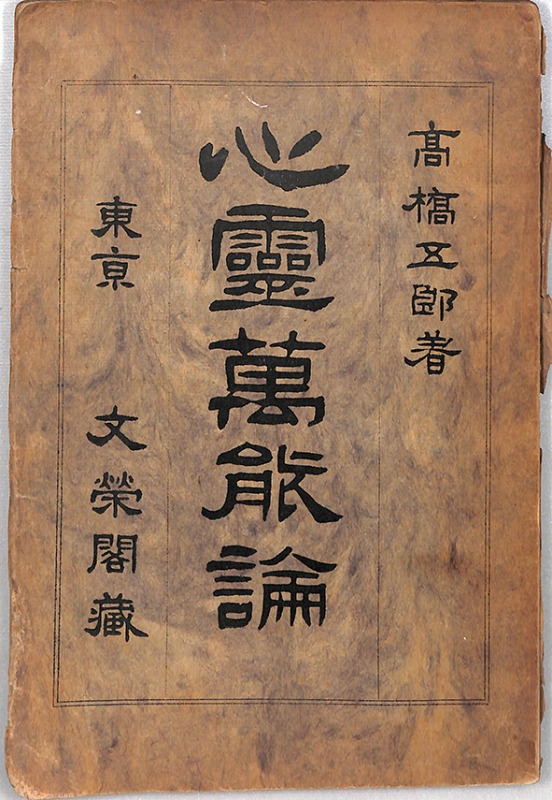 高橋五郎着
心靈萬能論
東京 文榮閣藏